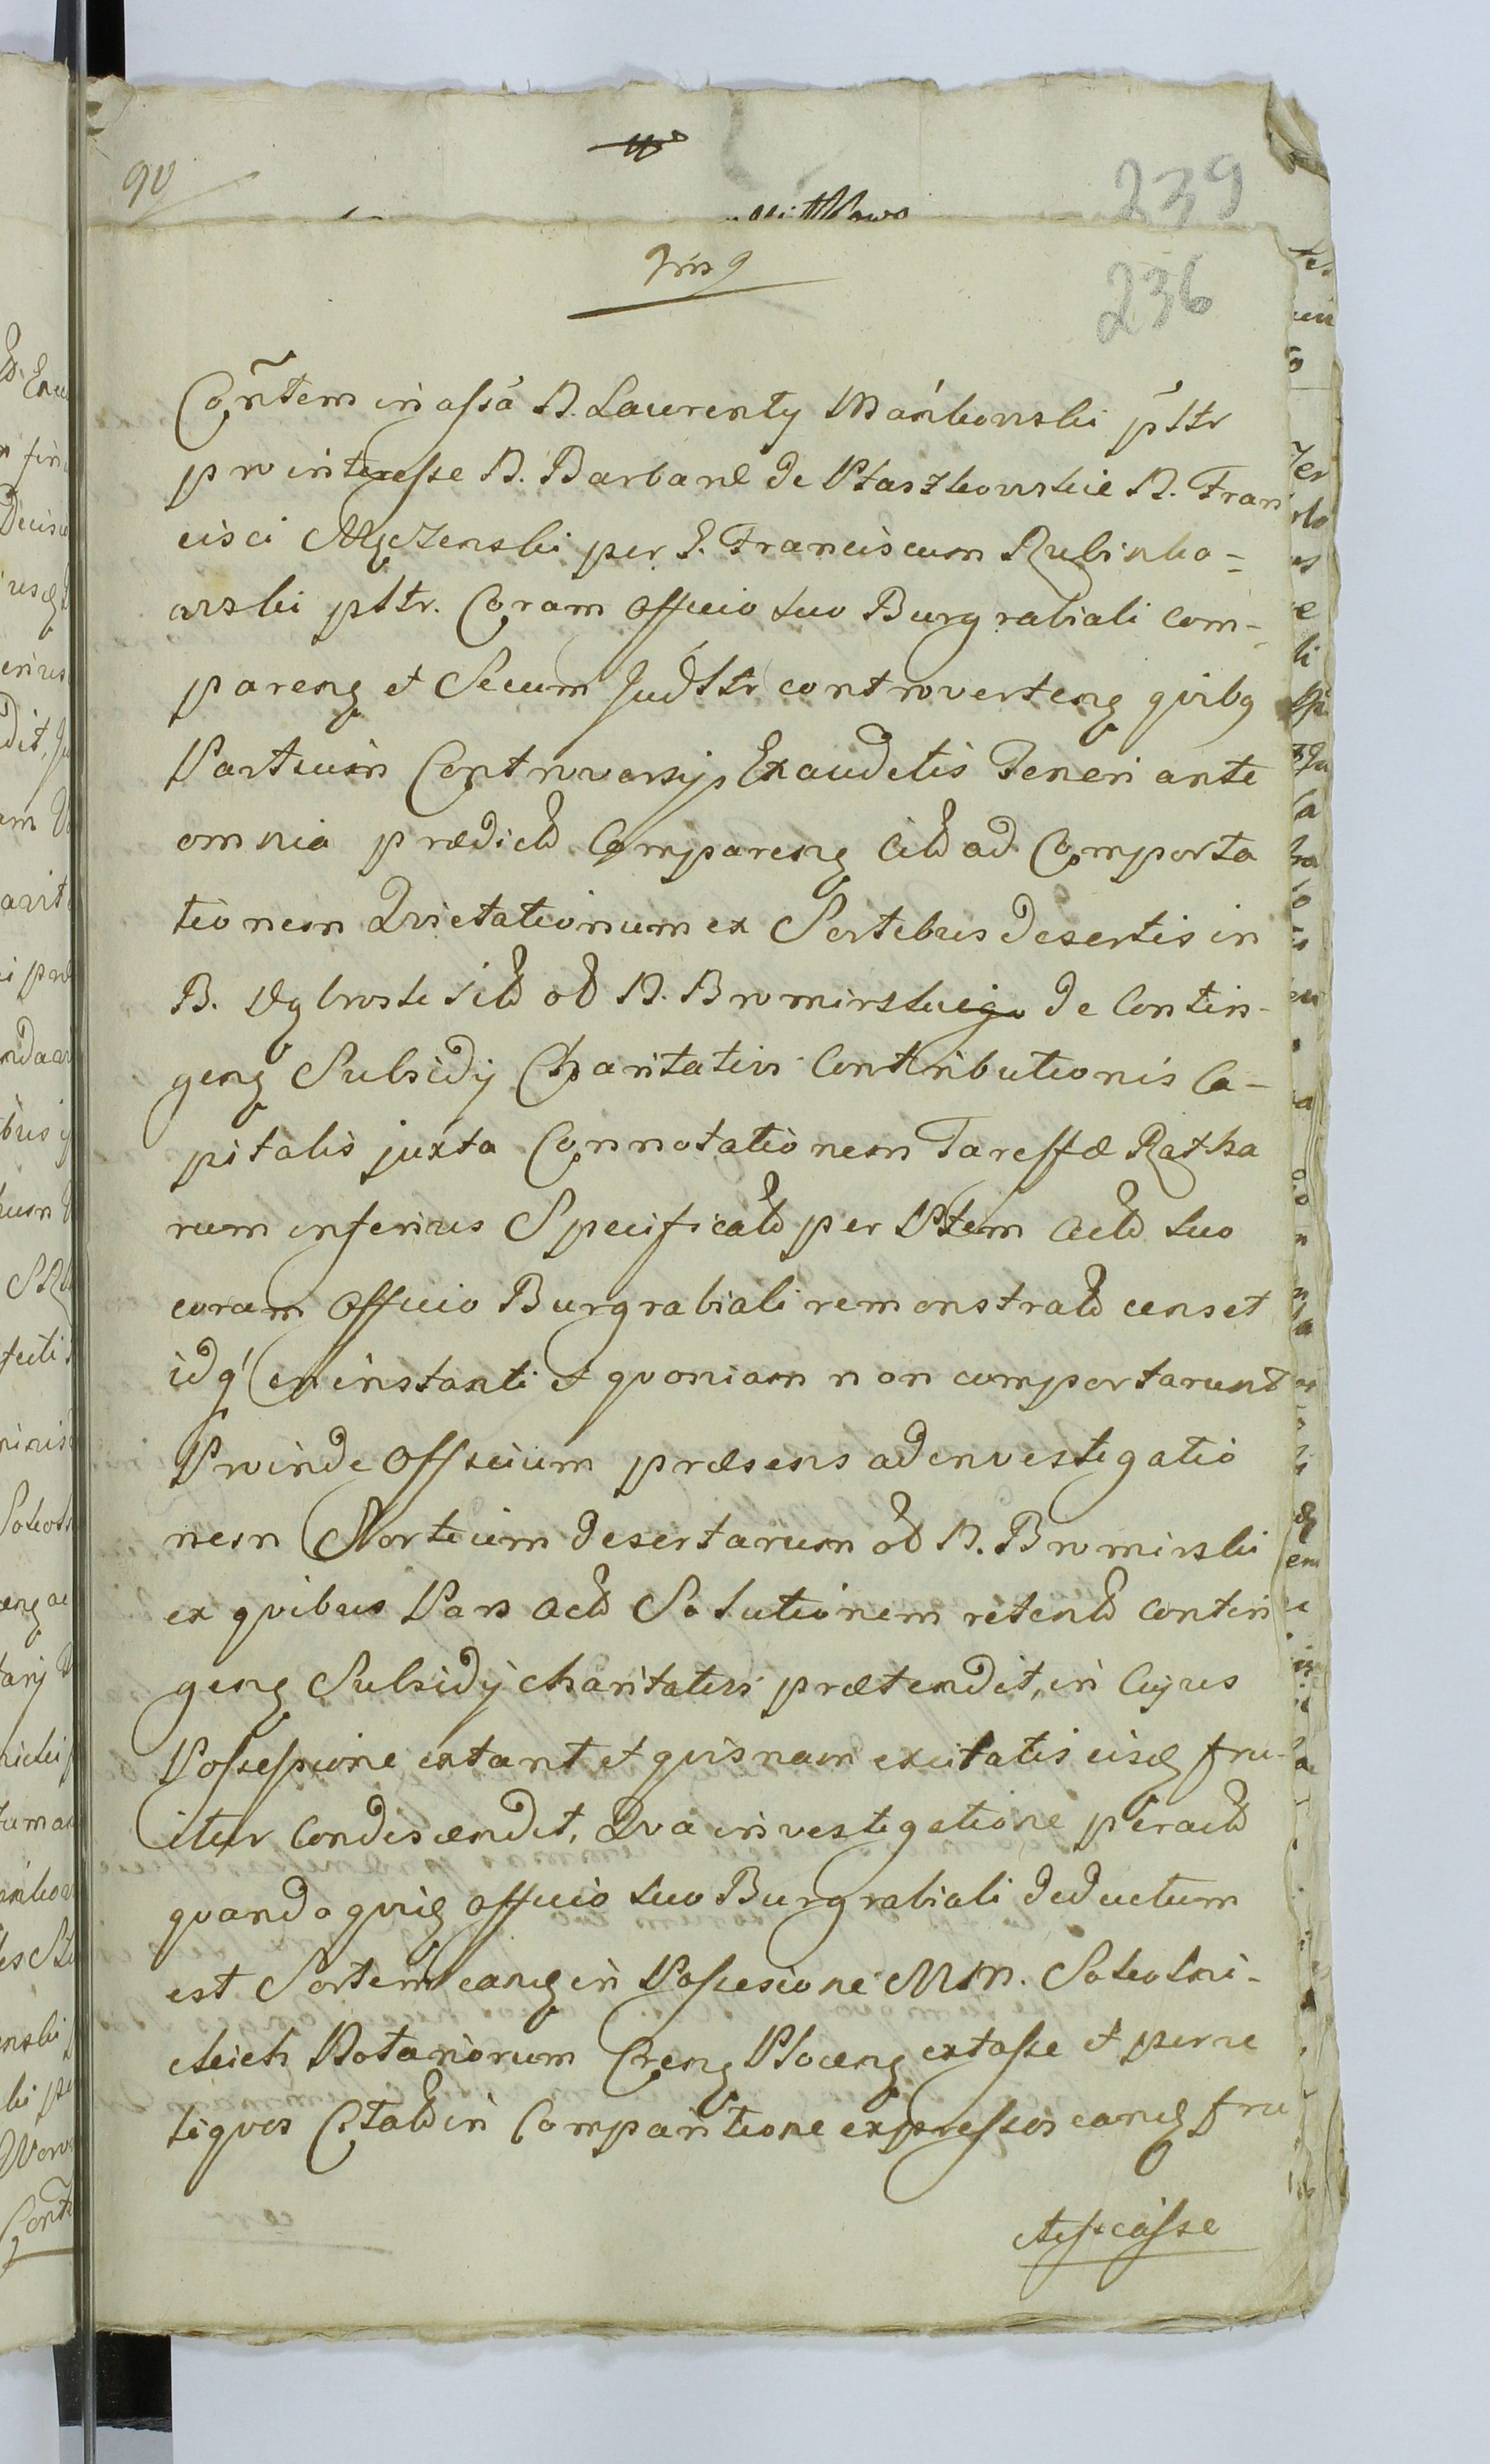 90
239
236
Contem in assa N. Laurenty Mańkowski pttr
pro interesse N. Barbaræ de Ptaszkowskie N. Fran
cisci Męczenski per G. Franciscum Rubinko=
wski pttr. Coram Officio suo Burgrabiali com-
pareng et Secum Judttr controverteng quibg
Partium Controversijs Exauditis Teneri ante
omnia prædictd Compareng Citd ad Comporta
tionem Quietationum ex Sortibus desertis in
B. sitd od N. Bromirskiego de Contin-
geng Subsidij Charitativi Contributionis Ca-
pitalis juxta Connotationem Tareffæ Ratha
rum inferius Specificatd per Ptem Actd suo
coram Officio Burgrabiali remonstratd censet
idq in instanti et quoniam non comportarunt
Proinde Officium præsens ad investigatio
nem Sortium desertarum od N. Bromirski
ex quibus Pars Actd Solutionem retentd contin
geng Subsidij charitativi prætendit, in Cujus
Possessione extant et quisnam excitatis eisq fru-
itur Condescendit, Qua investigatione peractd
quandoquidq Officio suo Burgrabiali deductum
est Sortem eanq in Possesione MM. Sokolni-
ckich Notariorum Creng Ploceng extasse et per re
liquos Citatd in Comparitione expressos eanq fru